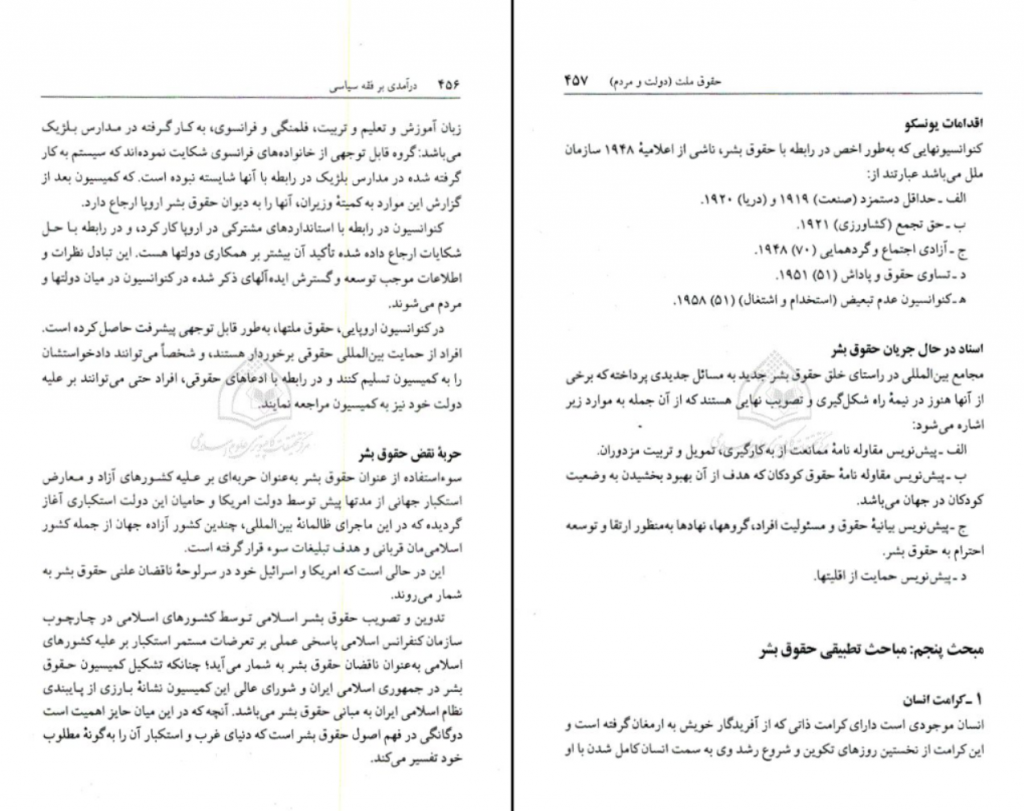 ۴۵۶ درآمدی بر فقه سیاسی
زبان آموزش و تعلیم و تربیت، فلمنگی و فرانسوی، به کار گرفته در مدارس بلژیک
می‌باشد: گروه قابل توجهی از خانواده‌های فرانسوی شکایت نموده‌اند که سیستم به کار
گرفته شده در مدارس بلژیک در رابطه با آنها شایسته نبوده است. که کمیسیون بعد از
گزارش این موارد به کمیتهٔ وزیران، آنها را به دیوان حقوق بشر اروپا ارجاع دارد.
کنوانسیون در رابطه با استانداردهای مشترکی در اروپا کار کرد، و در رابطه با حل
شکایات ارجاع داده شده تأکید آن بیشتر بر همکاری دولتها هست. این تبادل نظرات و
اطلاعات موجب توسعه و گسترش ایده‌آلهای ذکر شده در کنوانسیون در میان دولتها و
مردم می‌شوند.
در کنوانسیون اروپایی، حقوق ملتها، به‌طور قابل توجهی پیشرفت حاصل کرده است.
افراد از حمایت بین‌المللی حقوقی برخوردار هستند، و شخصاً می‌توانند دادخواستشان
را به کمیسیون تسلیم کنند و در رابطه با ادعاهای حقوقی، افراد حتی می‌توانند بر علیه
دولت خود نیز به کمیسیون مراجعه نمایند.
حربهٔ نقض حقوق بشر
سوء‌استفاده از عنوان حقوق بشر به‌عنوان حربه‌ای بر علیه کشورهای آزاد و معارض
استکبار جهانی از مدتها پیش توسط دولت امریکا و حامیان این دولت استکباری آغاز
گردیده که در این ماجرای ظالمانهٔ بین‌المللی، چندین کشور آزاده جهان از جمله کشور
اسلامی‌مان قربانی و هدف تبلیغات سوء قرار گرفته است.
این در حالی است که امریکا و اسرائیل خود در سرلوحهٔ ناقضان علنی حقوق بشر به
شمار می‌روند.
تدوین و تصویب حقوق بشر اسلامی توسط کشورهای اسلامی در چارچوب
سازمان کنفرانس اسلامی پاسخی عملی بر تعرضات مستمر استکبار بر علیه کشورهای
اسلامی به‌عنوان ناقضان حقوق بشر به شمار می‌آید؛ چنانکه تشکیل کمیسیون حقوق
بشر در جمهوری اسلامی ایران و شورای عالی این کمیسیون نشانهٔ بارزی از پایبندی
نظام اسلامی ایران به مبانی حقوق بشر می‌باشد. آنچه که در این میان حایز اهمیت است
دوگانگی در فهم اصول حقوق بشر است که دنیای غرب و استکبار آن را به‌گونهٔ مطلوب
خود تفسیر می‌کند.
حقوق ملت (دولت و مردم) ۴۵۷
اقدامات یونسکو
کنوانسیونهایی که به‌طور اخص در رابطه با حقوق بشر، ناشی از اعلامیهٔ ۱۹۴۸ سازمان
ملل می‌باشد عبارتند از:
الف ـ حداقل دستمزد (صنعت) ۱۹۱۹ و (دریا) ۱۹۲۰.
ب ـ حق تجمع (کشاورزی) ۱۹۲۱.
ج ـ آزادی اجتماع و گردهمایی (۷۰) ۱۹۴۸.
د ـ تساوی حقوق و پاداش (۵۱) ۱۹۵۱.
ه‍ ـ کنوانسیون عدم تبعیض (استخدام و اشتغال) (۵۱) ۱۹۵۸.
اسناد در حال جریان حقوق بشر
مجامع بین‌المللی در راستای خلق حقوق بشر جدید به مسائل جدیدی پرداخته که برخی
از آنها هنوز در نیمهٔ راه شکل‌گیری و تصویب نهایی هستند که از آن جمله به موارد زیر
اشاره می‌شود:
الف ـ پیش‌نویس مقاوله نامهٔ ممانعت از به‌کارگیری، تمویل و تربیت مزدوران.
ب ـ پیش‌نویس مقاوله نامهٔ حقوق کودکان که هدف از آن بهبود بخشیدن به وضعیت
کودکان در جهان می‌باشد.
ج ـ پیش‌نویس بیانیهٔ حقوق و مسئولیت افراد، گروهها، نهادها به‌منظور ارتقا و توسعه
احترام به حقوق بشر.
د ـ پیش‌نویس حمایت از اقلیتها.
مبحث پنجم: مباحث تطبیقی حقوق بشر
۱ ـ کرامت انسان
انسان موجودی است دارای کرامت ذاتی که از آفریدگار خویش به ارمغان گرفته است و
این کرامت از نخستین روزهای تکوین و شروع رشد وی به سمت انسان کامل شدن با او